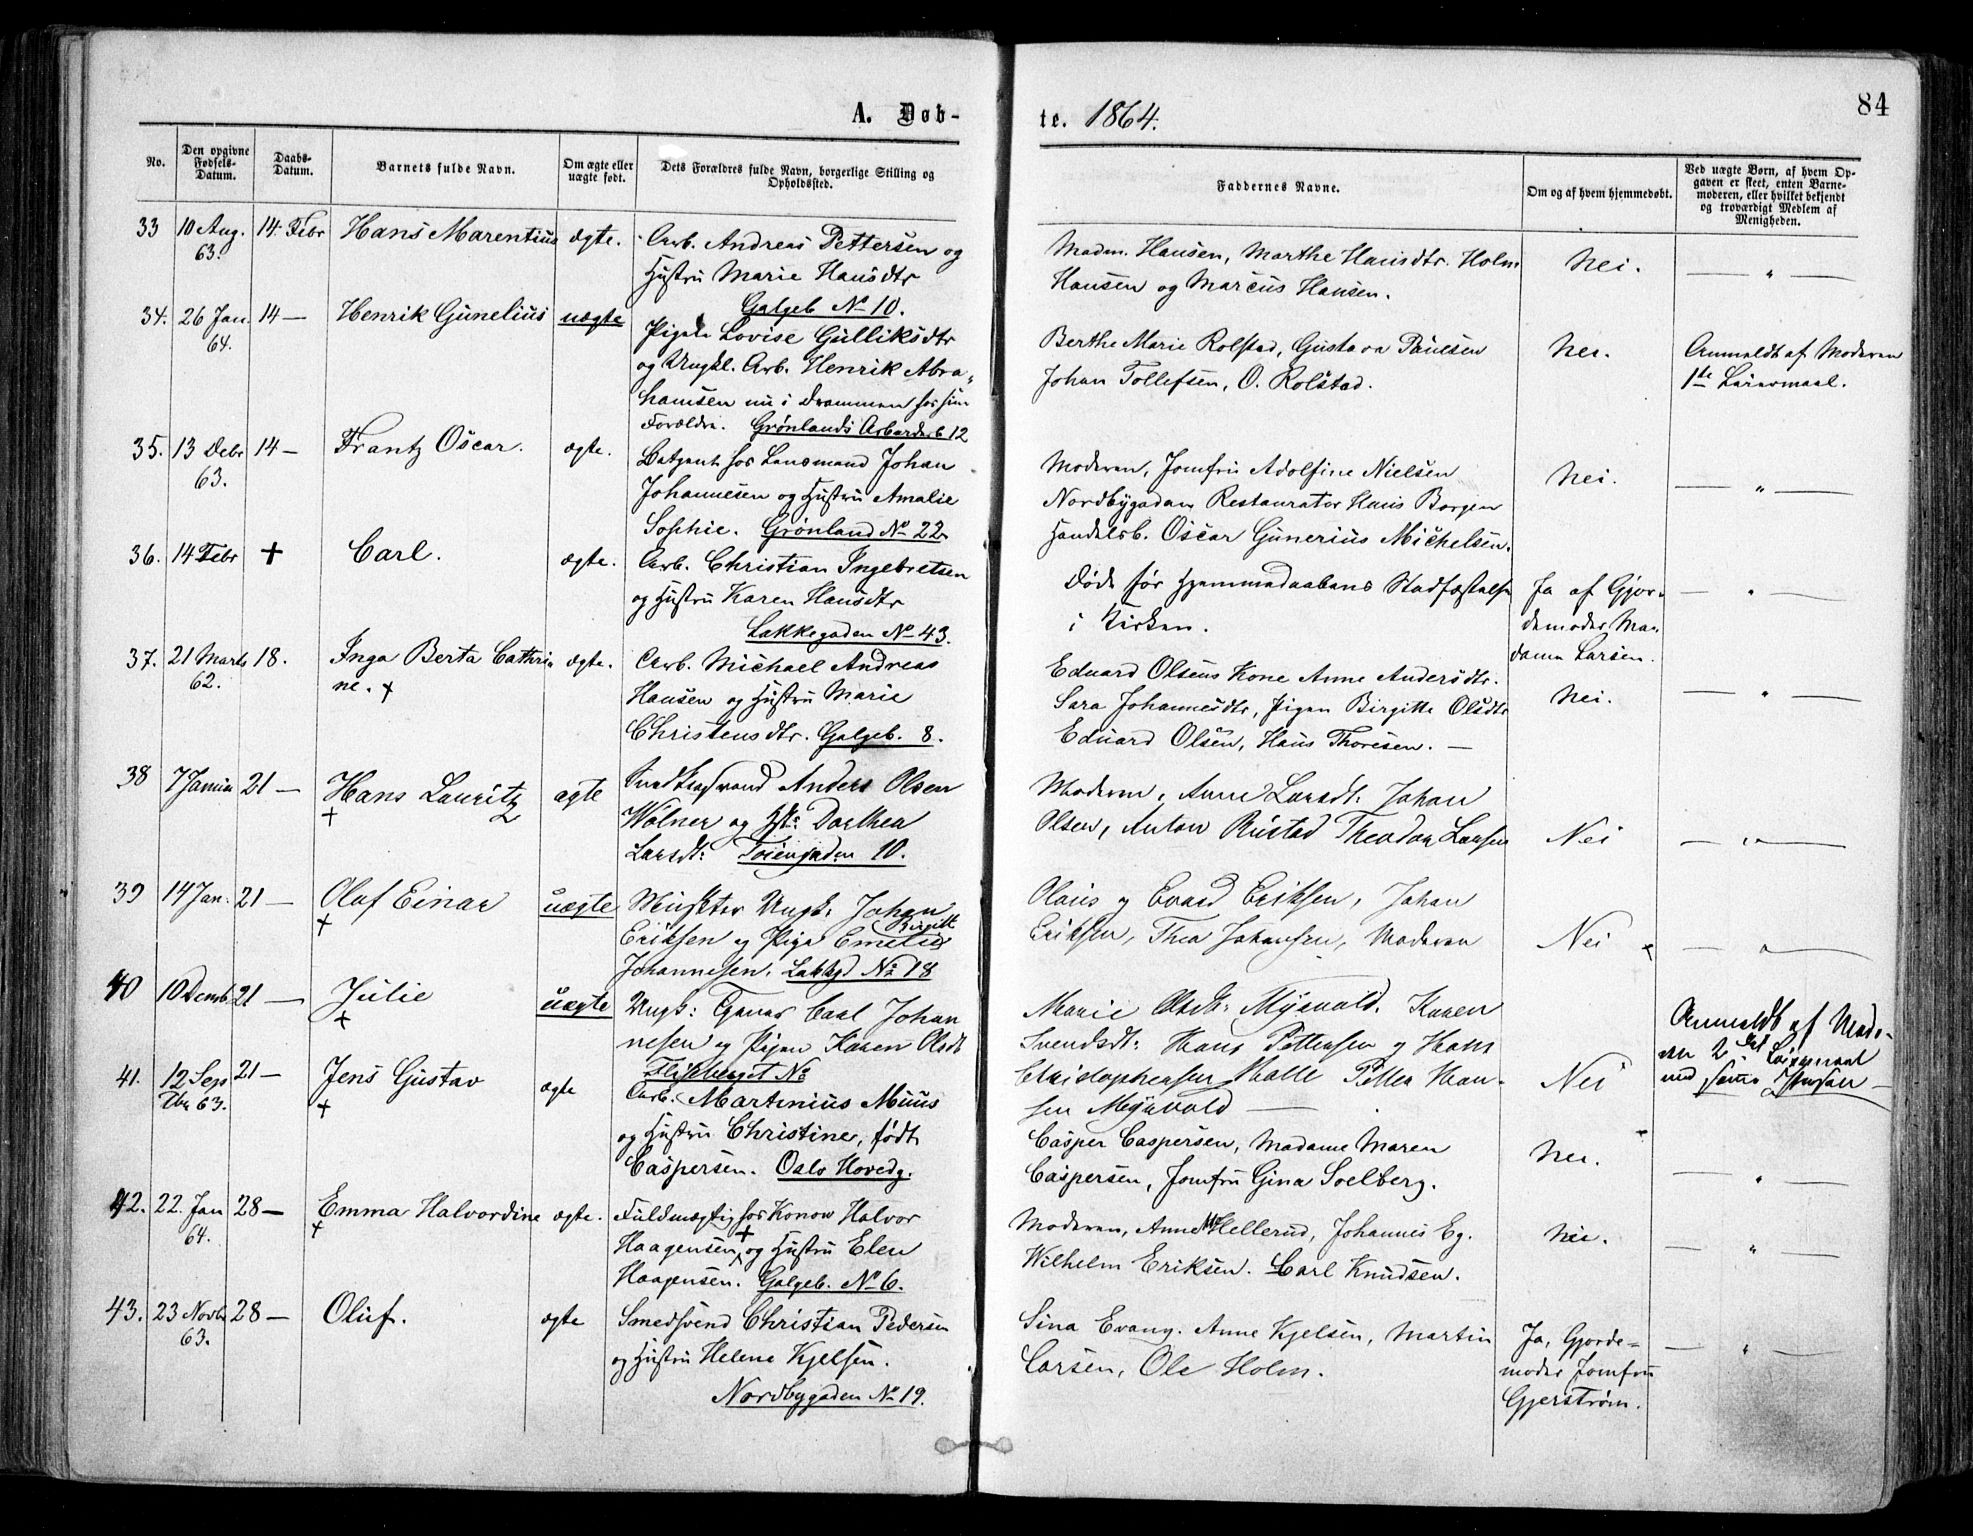 84
A. Døb-
te. 1864.
No.
Den opgivne Fødsels-Datum.
Daabs-Datum.
Barnets fulde Navn.
Om ægte eller uægte født.
Dets Forældres fulde Navn, borgerlige Stilling og Opholdssted.
Faddernes Navne.
Om og af hvem hjemmedøbt.
Ved uægte Børn, af hvem Opgaven er skeet, enten Barnemoderen, eller hvilket bekjendt og troværdigt Medlem af Menigheden.
33 10 Aug. 63. 14 Febr Hans Marentius ægte. Arb. Andreas Pettersen og
Hustru Marie Hansdtr
Galgeb No 10.
Madm. Hansen, Marthe Hansdtr. Holm
Hansen og Marcus Hansen.
Nei. — „ —
34. 26 Jan. 64. 14 — Henrik Gunelius uægte Pigen Lovise Gulliksdtr
og Ungkl. Arb. Henrik Abra-
hamsen nu i Drammen hos sine
Forældre. Grønlands Arbarderb 12
Berthe Marie Rolstad, Gustava Paulsen
Johan Tollefsen, O. Rolstad.
Nei. Anmeldt af Moderen
1ste Leiermaal.
35. 13 Debr 63. 14 — Frantz Oscar. ægte. Betjent hos Lensmand Johan
Johannesen og Hustru Amalie
Sophie. Grønland No 22
Moderen, Jomfru Adolfine Nielsen
Nordbygaden Restaurator Hans Borgen
Handelsb. Oscar Gunerius Michelsen.
Nei. — „ —
36. 14 Febr + Carl. ægte. Arb. Christian Ingebretsen
og Hustru Karen Hansdtr
Lakkegaden No 43.
Døde før Hjemmedaabens Stadfæstelse
i Kirken.
Ja af Gjor-
demoder Ma-
dame Larsen.
— „ —
37. 21 Marts 62. 18. Inga Berta Cathri
ne. + ægte. Arb. Michael Andreas
Hansen og Hustru Marie
Christensdtr. Galgeb. 8.
Eduard Olsens Kone Anne Andersdtr.
Sara Johannesdtr, Pigen Birgitte Olsdtr
Eduard Olsen, Hans Thoresen. —
Nei. — „ —
38 7 Januar 21 — Hans Lauritz + ægte Anders Olsen
Wolner og H: Dorthea
Larsdt: Tøiengaden 10.
Moderen, Anne Larsdt: Johan
Olsen, Anton Rustad Theodor Larsen
Nei — „ —
39 14 Jan. 21 — Olaf Einar + uægte Ungk. Johan
Eriksen og Pige Emelie Birgitte
Johannesen. Lakkgd No 18
Olaus og Evard Eriksen, Johan
Eriksen, Thea Johansen, Moderen
Nei — „ —
40 10 Decmb. 21 — Julie + uægte Ungk: Carl Johan
nesen og Pigen Karen Olsdt
Flisberget No
Marie Olsdt: Myrvold. Karen
Svendsdt: Hans Pettersen og Hans
Christophersen Petter Han-
sen Myrvold —
Nei Anmeldt af Mode-
ren 2det Leiermaal
med samme Person —
41. 12 Sep tbr 63. 21 — Jens Gustav + ægte Arb. Martinius Muus
og Hustru Christine, født
Caspersen. Oslo Hovedg.
Casper Caspersen, Madame Maren
Caspersen, Jomfru Gina Soelberg.
Nei. — „ —
42. 22. Jan 64. 28 — Emma Halvordine + ægte. Fuldmægtig hos Konow Halvor
Haagensen + og Hustru Elen
Haagensen. Galgeb. No 6.
Moderen, Anne Hellerud, Johannes Eg.
Wilhelm Eriksen. Carl Knudsen.
Nei. — „ —
43. 23 Novbr 63. 28 — Oluf. ægte Smedsvend Christian Pedersen
og Hustru Helene Kjelsen.
Nordbygaden No 19.
Sina Evang. Anne Kjelsen, Martin
Larsen, Ole Holm.
Ja, Gjorde-
moder Jomfru
Gjerstrøm.
— „ —